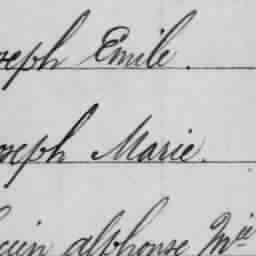 oseph Emile.
oseph Marie.
alphonse Mie